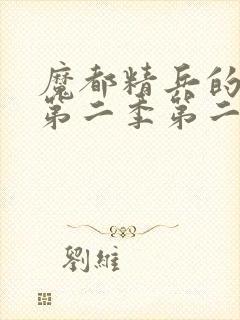 魔都精兵的
第二季第二
劉維